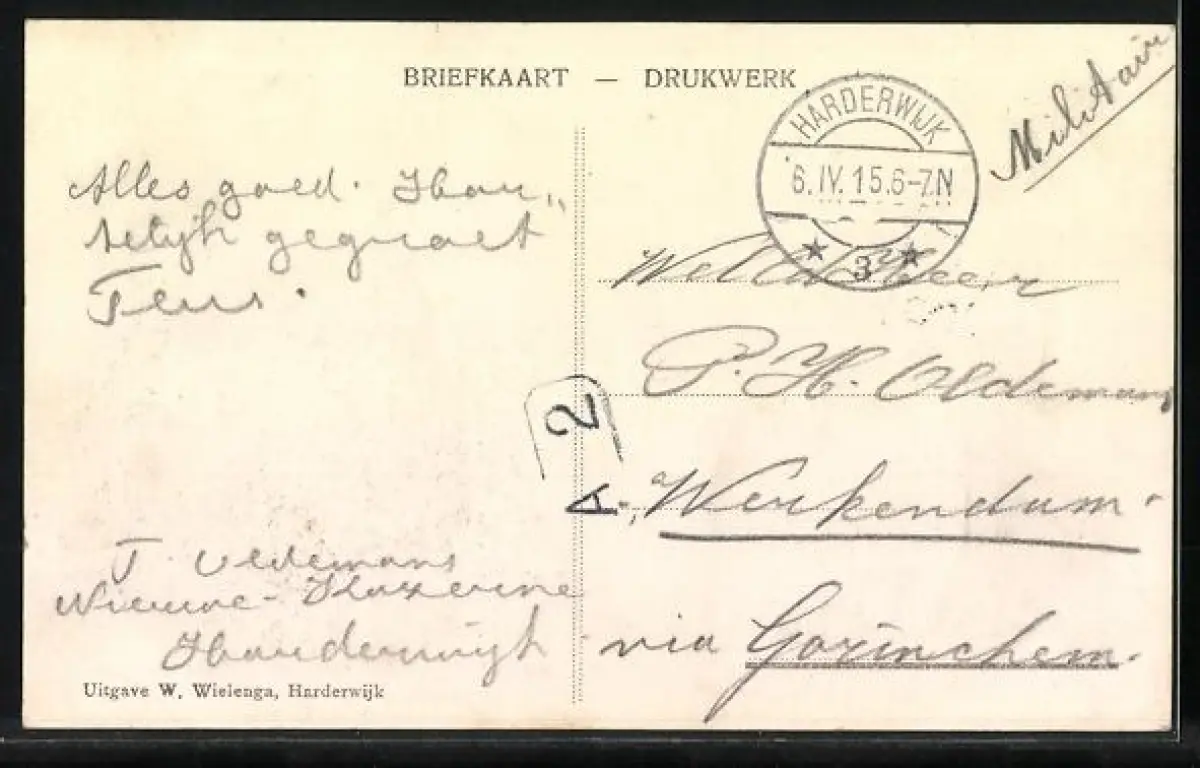 BRIEFKAART — DRUKWERK
Militair
HARDERWIJK
6.IV.15.6-7.N
3
Alles goed. Har„
telijk gegroet
Teus.
WelEd. Heer
P. H. Oldemans
Werkendam.
via Gorinchem.
A 2
T. Oldemans
Nieuwe-Kazerne
Harderwijk
Uitgave W. Wielenga, Harderwijk